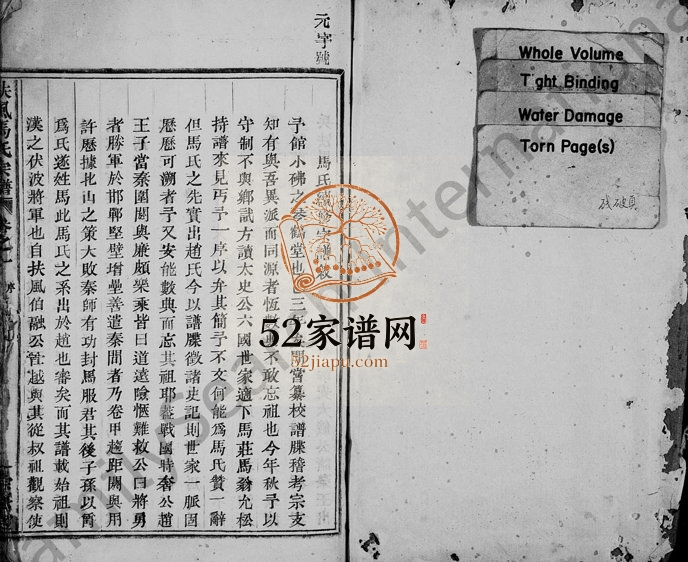 元字號
馬氏
予館小佛
堂也
三
嘗纂校譜牒稽考宗支
知有與吾異派而同源者恆數
不敢忘祖也今年秋予以
守制不與鄉試方讀太史公六國世家適下馬莊馬翁允松
持譜來見丐予一序以弁其簡予不文何能爲馬氏贊一辭
但馬氏之先實出趙氏今以譜牒徵諸史記則世家一脈固
歷歷可溯者予又安能數典而忘其祖耶蓋戰國時奢公趙
王子當秦圍閼與廉頗樂乘皆曰道遠險愜難救公曰將勇
者勝軍於邯鄲堅壁增壘善遣秦間者乃卷甲趨距閼與用
許歷據北山之策大敗秦師有功封馬服君其後子孫以爵
爲氏遂姓馬此馬氏之系出於趙也審矣而其譜載始祖則
漢之伏波將軍也自扶風伯融公
越與其從叔祖觀察使
扶風馬氏宗譜
卷之
Whole Volume
Tight Binding
Water Damage
Torn Page(s)
残破頁
52家谱网
52jiapu.com
FamilySearch International